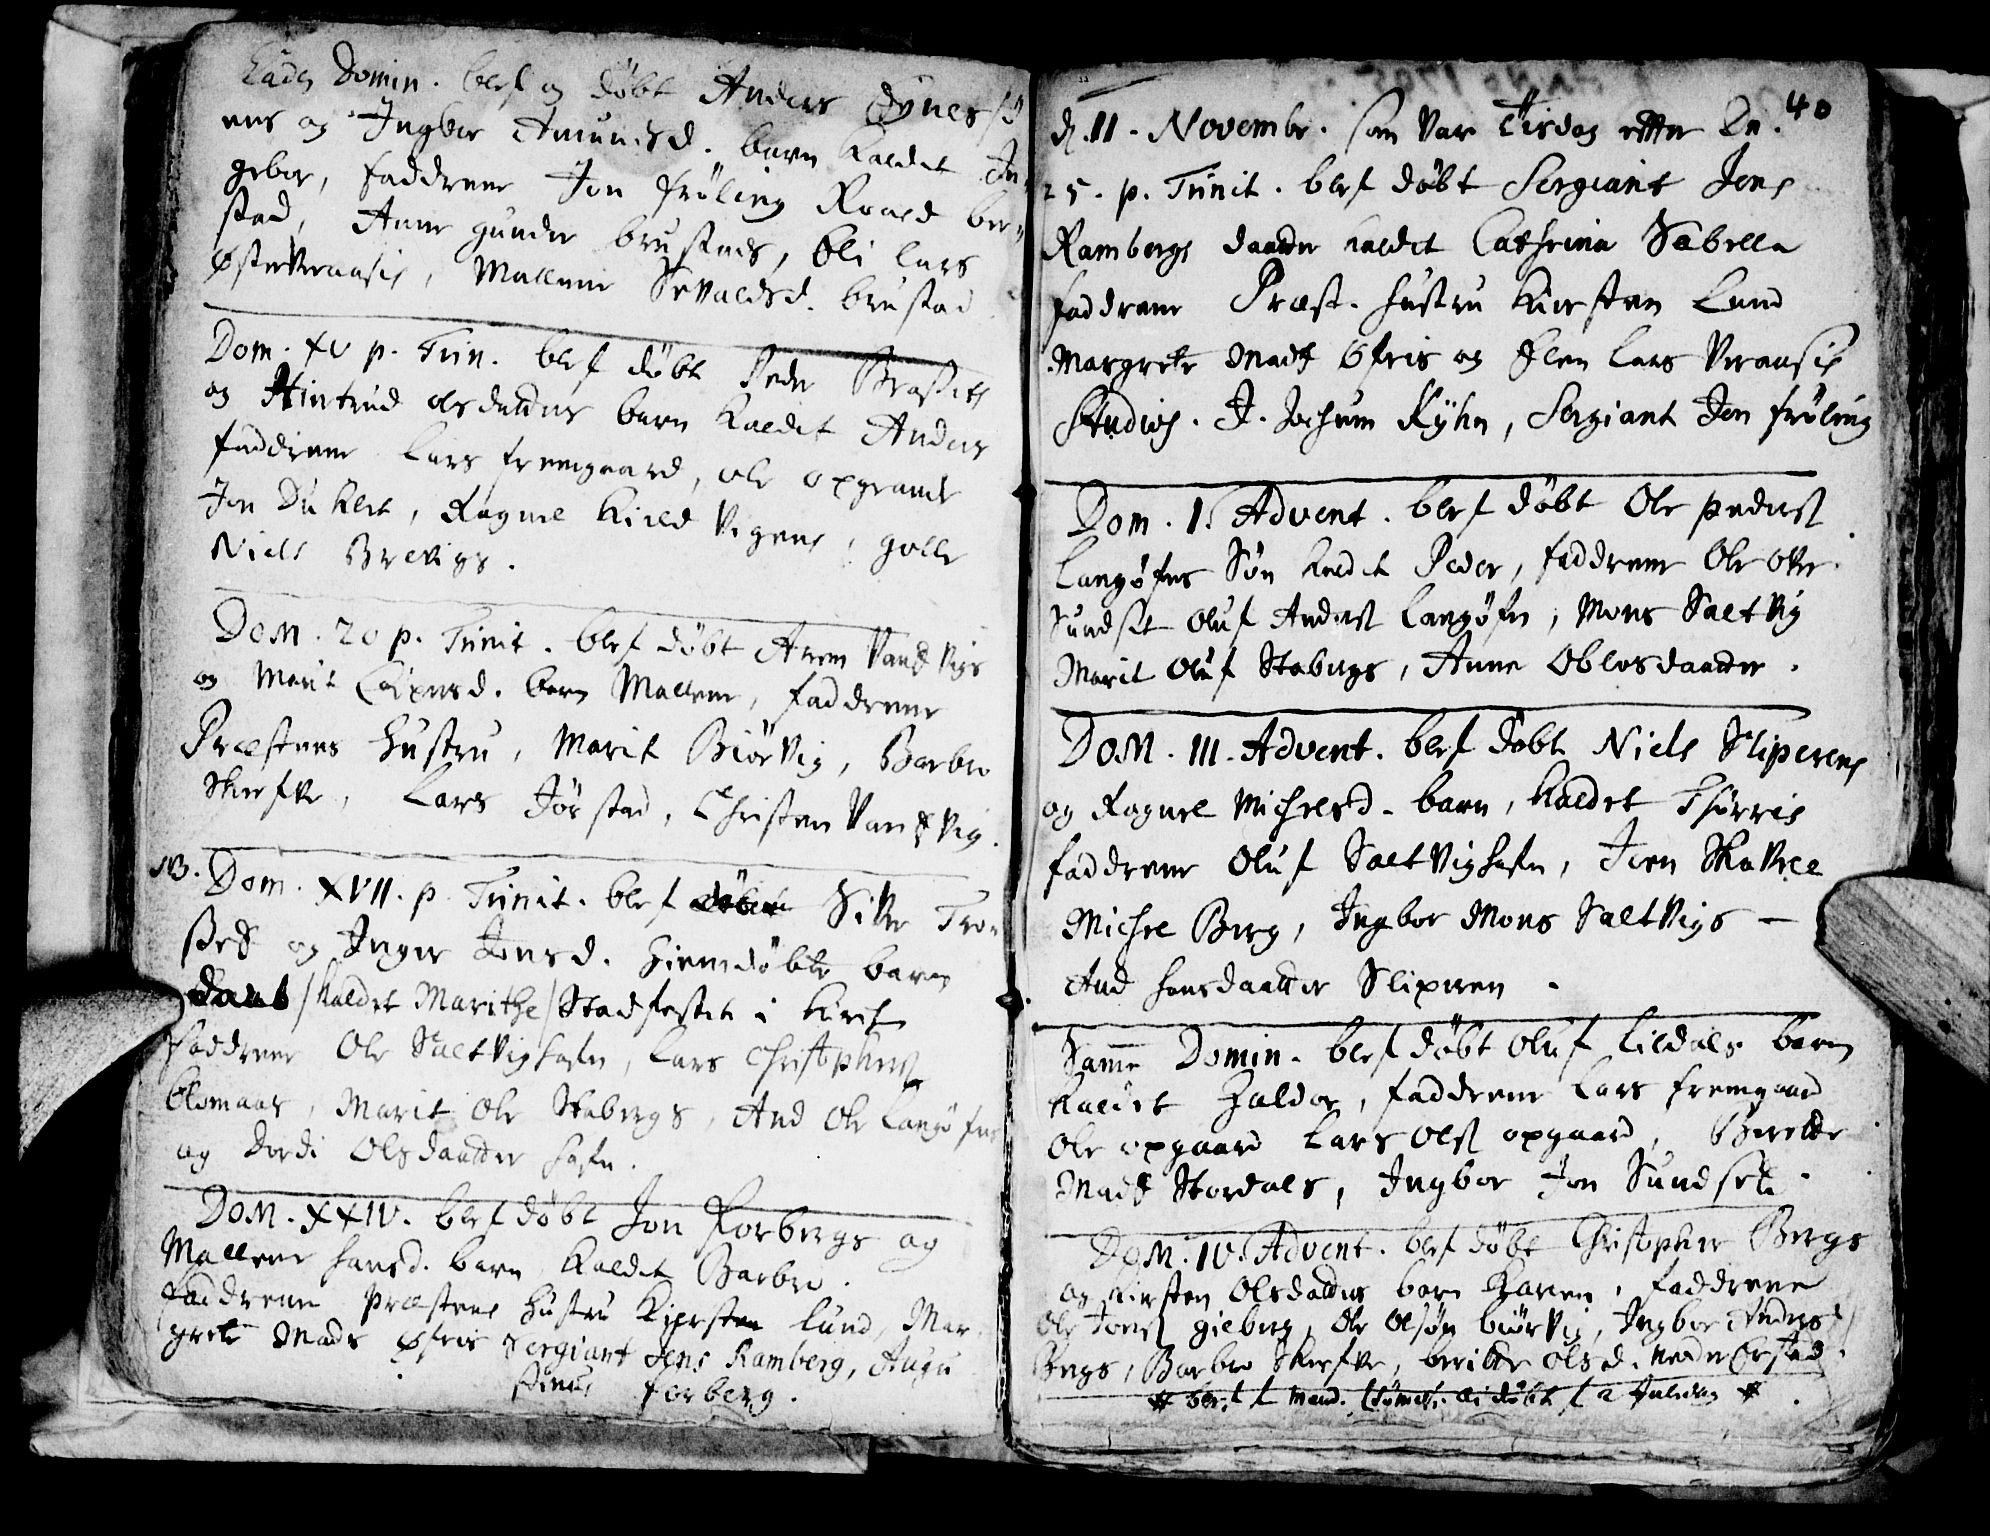 Eadem Domin. blef og døbt Anders
ens og Ingbor Amundsd. barn kaldet In-
gebor, faddrene Jon frøling Roald bru-
stad, Anne gunder brustads, Eli Lars
østerkraasis, Mallene Sivaldsd. brustad
Dom. XV p. Trin. blef døbt Peder
og olsdatters barn kaldet Anders
faddrene Lars fremgaard, ole opgaard
Jon Duklet, Ragnel Kield Vigens, golle
Niels Brevigs.
Dom. 20 p. Trinit. blef døbt Arren Vandvigs
og Marit barn Mallene, faddrene
Præstens Hustru, Marit Biørvig, Barbro
Skrefve, Lars Jørstad, Christen Vandvig.
NB. Dom. XVII. p. Trinit. blef døbt Siver Tron-
og Inger Jonsd. hiemdøbte barn
/kaldet Marithe/ Stadfestet i kirk
faddrene Ole Saltvighafn, Lars Christophers
Marit Ole Stabergs, And Ole Langøfns
og Dordi Olsdaatter hafn.
Dom. XXIV. blef døbt Jon Forbergs og
Mallene hansd. barn kaldet Barbro.
faddrene Præstens Hustru Kiersten Lund, Mar-
grete Mads Øfris Sergiant Jens Ramberg, Augu-
stinus forberg.
40
d. 11. Novembr. som var Tisdag efter Dn.
25. p. Trinit. blef døbt Sergiant Jens
Rambergs daatter kaldet Cathrina Sabella
faddrene Præst. hustru Kiersten Lund
Margrete Mads Øfris og Elen Lars Veraasis
Studios. J. Jochum Kyhn, Sergiant Jon frøling
Dom. I. Advent. blef døbt Ole peders
Langøfns Søn kaldet Peder, faddrene Ole over
Sundset Oluf Anders Langøfn, Mons Saltvig
Marit Oluf Stabergs, Anne Oblesdaatter.
Dom. III. Advent. blef døbt Niels Sliperens
og Ragnel Michelsd. barn, kaldet Thørris
faddrene Oluf Saltvighafn, Joen Skavlee
Michel Berg, Ingbor Mons Saltvigs —
And hansdaatter Sliperen.
Samme Domin. blef døbt Oluf Lildals barn
kaldet Haldor, faddrene Lars fremgaard
Ole opgaard Lars Ols opgaard, Berette
Mads Stordals, Ingbor Jon Sundsets
Dom. IV. Advent. blef døbt Christopher Bergs
og Kirsten Olsdatters barn Karen, faddrene
Ole Jons gieberg, Ole Olsøn biørvig, Ingbor Anders
Bergs, Barbro Skrefve, berette olsd.
døbt 2 Juledag